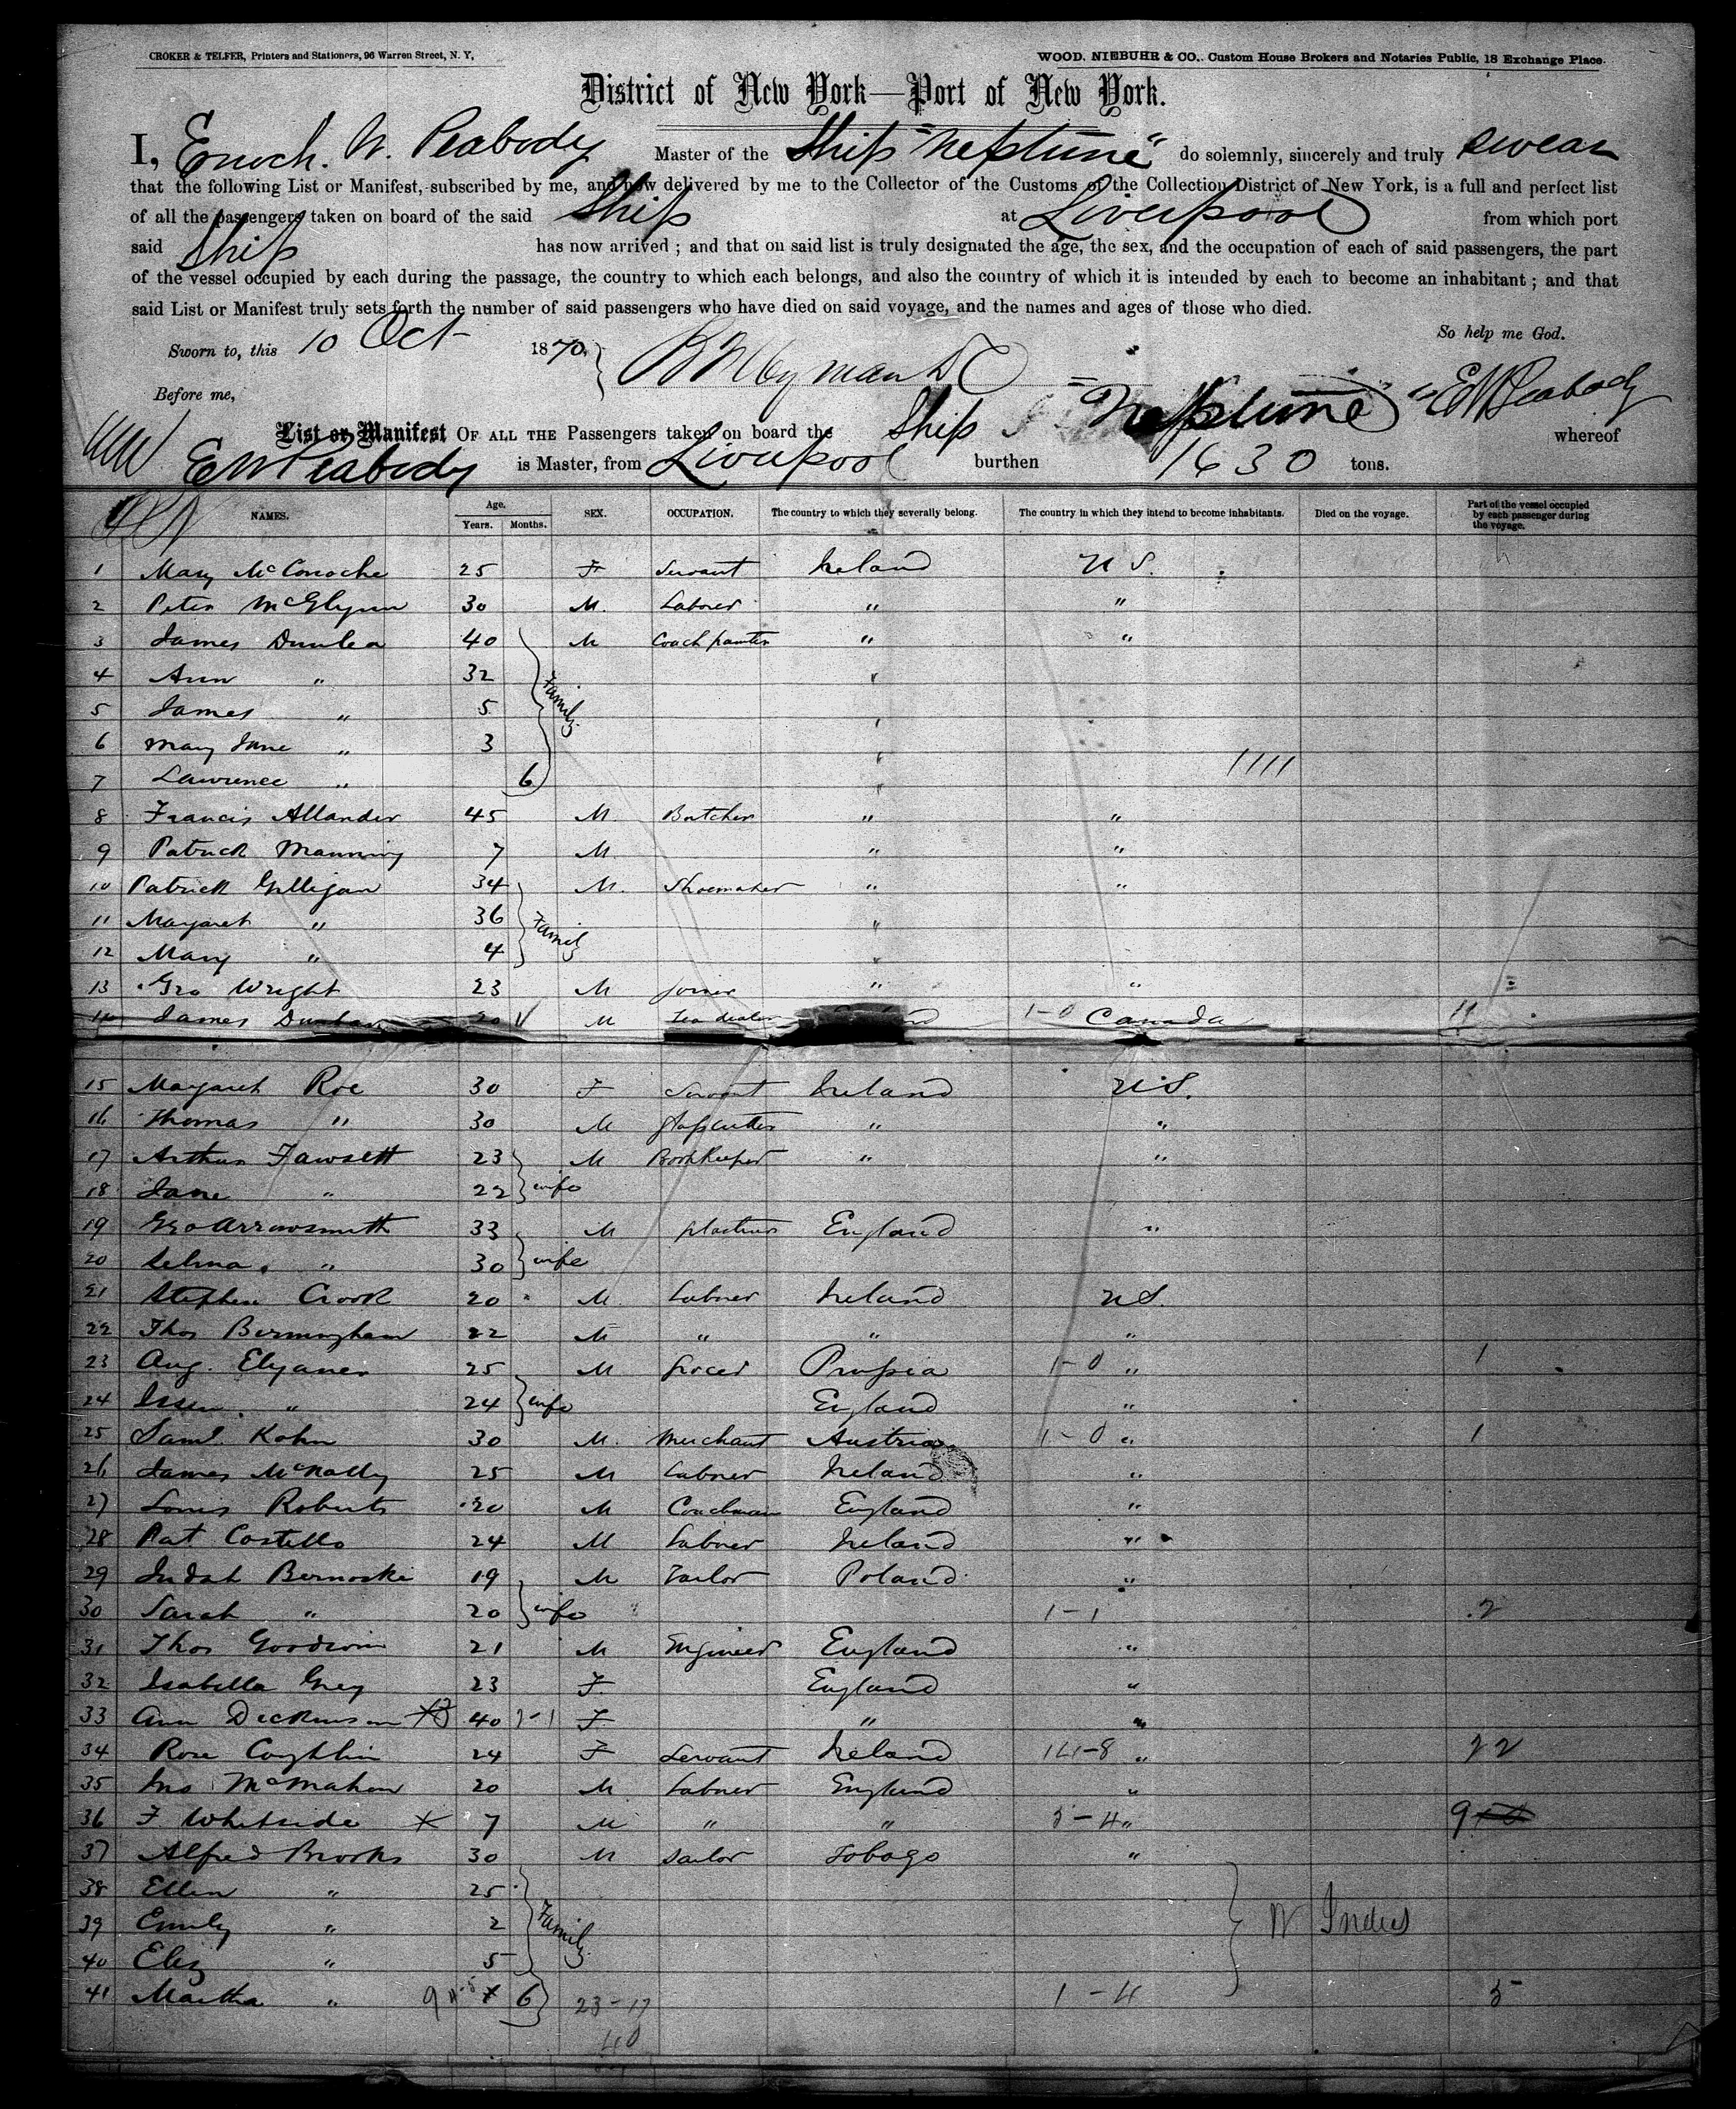 CROKER & TELFER, Printers and Stationers, 96 Warren Street, N. Y,
WOOD, NIEBUHR & CO., Custom House Brokers and Notaries Public, 18 Exchange Place.
District of New York—Port of New York.
I, Enoch. W. Peabody Master of the Ship "Neptune" do solemnly, sincerely and truly swear
that the following List or Manifest, subscribed by me, and now delivered by me to the Collector of the Customs of the Collection District of New York, is a full and perfect list
of all the passengers taken on board of the said Ship at Liverpool from which port
said Ship has now arrived ; and that on said list is truly designated the age, the sex, and the occupation of each of said passengers, the part
of the vessel occupied by each during the passage, the country to which each belongs, and also the country of which it is intended by each to become an inhabitant ; and that
said List or Manifest truly sets forth the number of said passengers who have died on said voyage, and the names and ages of those who died.
So help me God.
Sworn to, this 10 Oct 1870.
Before me, EW Peabody
List or Manifest OF ALL THE Passengers taken on board the Ship "Neptune" whereof
EW Peabody is Master, from Liverpool burthen 1630 tons.
NAMES. Age. Years. Months. SEX. OCCUPATION. The country to which they severally belong. The country in which they intend to become inhabitants. Died on the voyage. Part of the vessel occupied by each passenger during the voyage.
1 Mary McConoche 25 F Servant Ireland U S.
2 Peter McGlynn 30 M. Laborer " "
3 James Dunlea 40 M Coach painter " "
4 Ann " 32 Family "
5 James " 5 "
6 Mary Jane " 3 "
7 Lawrence " 6 " 1111
8 Francis Allander 45 M. Butcher " "
9 Patrick Manning 7 M. " "
10 Patrick Gilligan 34 M. Shoemaker " "
11 Margaret " 36 Family "
12 Mary " 4 "
13 Geo Wright 23 M Joiner " "
14 James 20 M Tea dealer 1-0 Canada 11
15 Margaret Roe 30 F Servant Ireland U.S.
16 Thomas " 30 M Glasscutter " "
17 Arthur Fawsett 23 M Bookkeeper " "
18 Jane " 22 wife
19 Geo Arrowsmith 33 M plasterer England "
20 Selina " 30 wife
21 Stephen Crook 20 M. Laborer Ireland U S.
22 Thos Bermingham 22 M " " "
23 Aug. Elyaner 25 M Grocer Prussia 1-0 " 1
24 " 24 wife England "
25 Saml. Kohn 30 M. Merchant Austria 1-0 " 1
26 James McNally 25 M Laborer Ireland "
27 Louis Roberts 20 M Coachman England "
28 Pat Costello 24 M Laborer Ireland "
29 Judah Bernoski 19 M Tailor Poland "
30 Sarah " 20 wife 1-1 2
31 Thos Goodwin 21 M Engineer England "
32 Isabella Grey 23 F. England "
33 Ann Dickinson 40 F. " "
34 Rose Coughlin 24 F Servant Ireland 141-8 " 22
35 Jno McMahon 20 M Laborer England "
36 F Whiteside X 7 M " " 3-4 " 9
37 Alfred Brooks 30 M Sailor Tobago "
38 Ellen " 25
39 Emily " 2 Family W Indies
40 Eliz " 5
41 Martha " 6 23-17 1-4 5
40